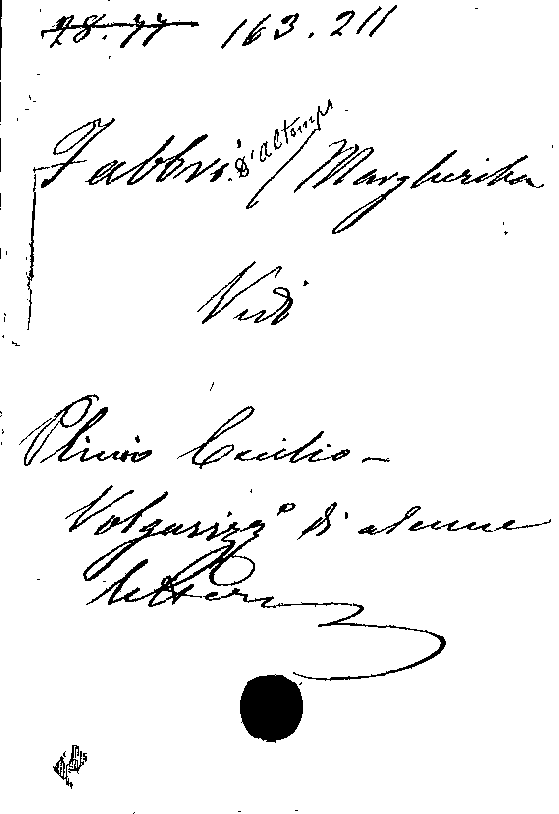 28.77 163.211
Fabbri D'Altemps / Margherita
Vedi
Plinio Cecilio -
Volgarizz° di alcune
lettere